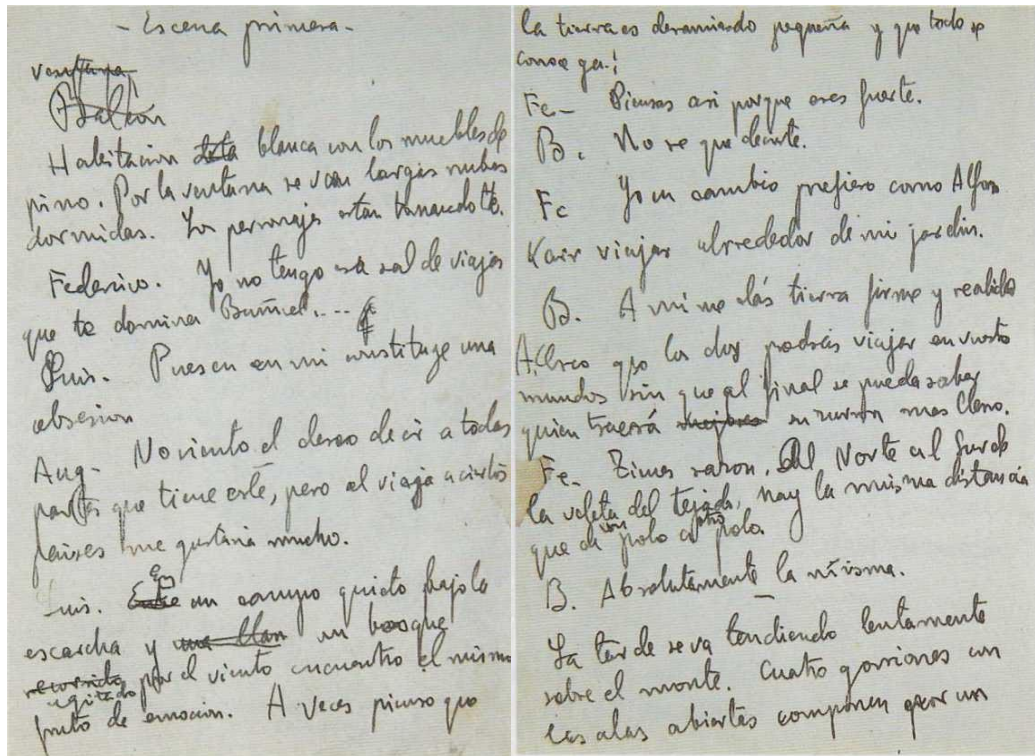 - Escena primera -
Ventana
Balcón
Habitacion esta blanca con los muebles de
pino. Por la ventana se ven largas nubes
dormidas. Los personajes estan tomando té.
Federico. Yo no tengo esa sed de viajes
que te domina Buñuel....
Luis. Pues en mi constituye una
obsesion
Aug- No siento el deseo de ir a todas
partes que tiene este, pero el viaje a ciertos
paises me gustaria mucho.
Luis. En un campo quieto bajo la
escarcha y una llan un bosque
recorrido
agitado por el viento encuentro el mismo
fruto de emocion. A veces pienso que
la tierra es demasiado pequeña y que todo se
conoce ya!
Fe- Piensas asi porque eres fuerte.
B. No se que decirte.
Fe Yo en cambio prefiero como Alfon
Karr viajar alrededor de mi jardin.
B. A mi me dás tierra firme y realidad
que los dos podeis viajar en vuestro
mundos sin que al final se pueda saber
quien traerá mejores su zurron mas lleno.
Fe- Tienes razon. Del Norte al Sur de
la veleta del tejado, hay la misma distancia
que de un polo a otro polo.
B. Absolutamente la misma.
La tarde se va tendiendo lentamente
sobre el monte. Cuatro gorriones con
las alas abiertas componen por un